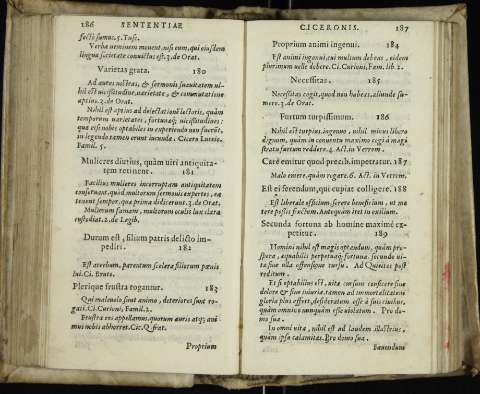 186 SENTENTIAE
fecti sumus. 5. Tusc.
Verba neminem mouent, nisi eum, qui eiusdem
linguæ societate coniunctus est. 3. de Orat.
Varietas grata. 180
Ad aures nostras, & sermonis suauitatem ni-
hil est vicissitudine, varietate, & commutatione
aptius. 3. de Orat.
Nihil est aptius ad delectationē lectoris, quàm
temporum varietates, fortunæq; vicissitudines:
quæ etsi nobis optabiles in experiendo non fuerūt,
in legendo tamen erunt iucundæ. Cicero Lucceio.
Famil. 5.
Mulieres diutius, quàm viri antiquita-
tem retinent. 181
Facilius mulieres incorruptam antiquitatem
conseruant, quòd multorum sermonis expertes, ea
tenent semper, quæ prima didicerunt. 3. de Orat.
Mulierum famam, multorum oculis lux clara
custodiat. 2. de Legib.
Durum est, filium patris delicto im-
pediri. 182
Est acerbum, parentum scelera filiorum pœnis
lui. Ci. Bruto.
Plerique frustra rogantur. 183
Qui maleuolo sunt animo, deteriores sunt ro-
gati. Ci. Curioni, Famil. 2.
Frustra eos appellamus, quorum aures atq; ani-
mus nobis abhorret. Cic. Q. frat.
Proprium
CICERONIS. 187
Proprium animi ingenui. 184
Est animi ingenui, cui multum debeas, eidem
plurimum velle debere. Ci. Curioni, Fam. lib. 2.
Necessitas. 185
Necessitas cogit, quod non habeas, aliunde su-
mere. 3. de Orat.
Furtum turpissimum. 186
Nihil est turpius ingenuo, nihil minus libero
dignum, quàm in conuentu maximo cogi à magi
stratu furtum reddere. 4. Act. in Verrem.
Carè emitur quod precib. impetratur. 187
Malo emere, quàm rogare. 6. Act. in Verrem.
Est ei ferendum, qui cupiat colligere. 188
Est liberale officium, serere beneficium, ut me
tere possis fructum. Antequàm iret in exilium.
Secunda fortuna ab homine maximè ex-
petitur. 189
Homini nihil est magis optandum, quàm pro-
spera, æquabilis perpetuaq; fortuna, secundæ ui-
tæ siue ulla offensione cursu. Ad Quirites post
reditum.
gloria plus
quàm omnino nunquàm esse uiolatum. Pro do-
mo sua.
In omni vita, nihil est ad laudem illustrius,
quàm ipsa calamitas. Pro domo sua.